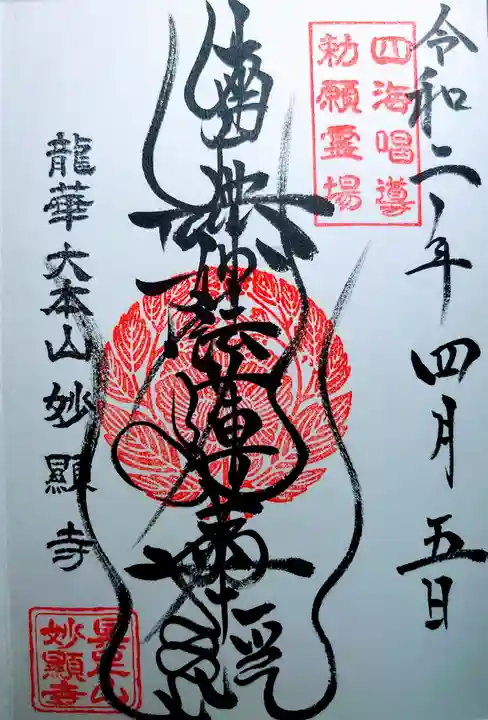 令和二年四月五日
四海唱導
勅願霊場
南無妙法蓮華経
龍華大本山妙顯寺
具足山
妙顯寺